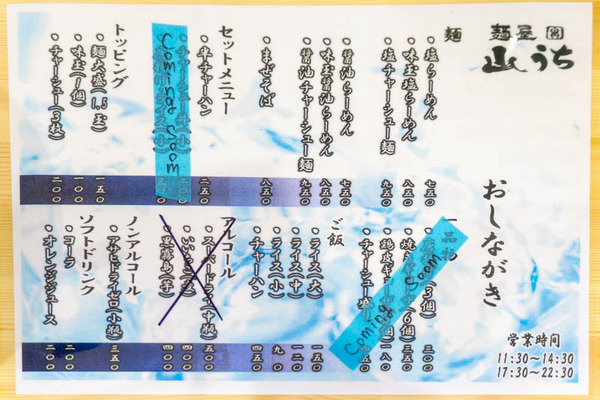 麺屋 山うち
おしながき
営業時間
11:30〜14:30
17:30〜22:30
麺
・塩らーめん 七五〇
・味玉塩らーめん 八五〇
・塩チャーシュー麺 九五〇
・醤油らーめん 七五〇
・味玉醤油らーめん 八五〇
・醤油チャーシュー麺 九五〇
・まぜそば 八五〇
セットメニュー
・半チャーハン 二五〇
Coming Soon
トッピング
・麺大盛(1.5玉) 一五〇
・味玉(1個) 一〇〇
・チャーシュー(3枚) 二〇〇
一品物
(3個) 三〇〇
(6個)
Coming Soon
ご飯
・ライス(大) 一五〇
・ライス(中) 一二〇
・ライス(小) 九〇
・チャーハン 四五〇
アルコール
・スーパードライ(中瓶) 五〇〇
四〇〇
・黒霧島(芋) 四〇〇
ノンアルコール
・アサヒドライゼロ(小瓶) 三五〇
ソフトドリンク
・コーラ 二〇〇
・オレンジジュース 二〇〇